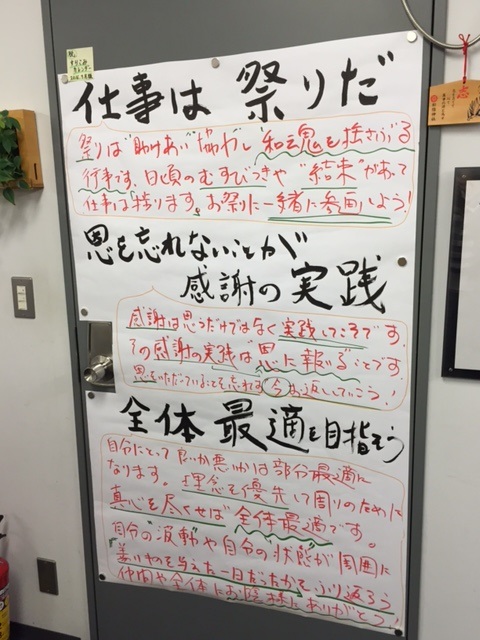 仕事は 祭りだ
祭りは"助けあい""協力し"和魂を揺さぶる
行事です。日頃のむすびつきや"結束"があって
仕事は捗ります。お祭りに一緒に参画しよう!
恩を忘れないことが
感謝の実践
感謝は思うだけではなく実践してこそです。
その感謝の実践は"恩に報いる"ことです。
恩をいただいていることを忘れずに今お返ししていこう!
全体最適を目指そう
自分にとって良いか悪いかは部分最適に
なります。理念を優先して周りのために
真心を尽くせば全体最適です。
自分の"波動"や自分の"状態"が周囲に
善いものを与えた一日だったかをふり返ろう
仲間や全体にお陰様にありがとう!